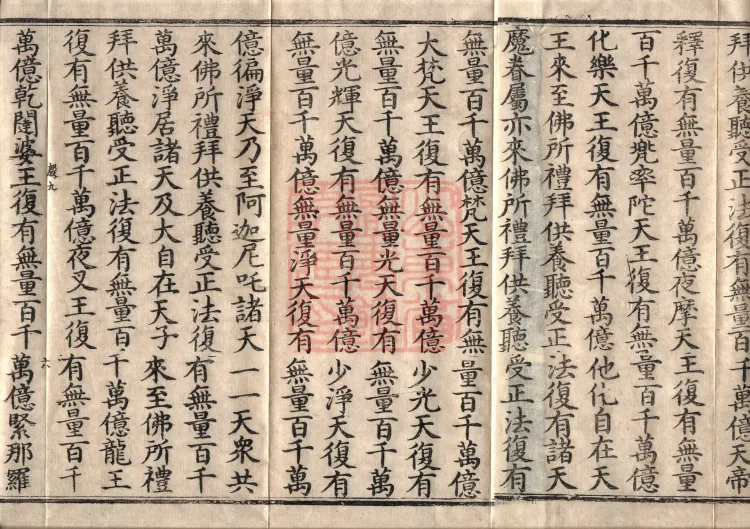 拜供養聽受正法復有無量百千萬億天帝
釋復有無量百千萬億夜摩天王復有無量
百千萬億兠率陀天王復有無量百千萬億
化樂天王復有無量百千萬億他化自在天
王來至佛所禮拜供養聽受正法復有諸天
魔眷屬亦來佛所禮拜供養聽受正法復有
無量百千萬億梵天王復有無量百千萬億
大梵天王復有無量百千萬億少光天復有
無量百千萬億無量光天復有無量百千萬
億光輝天復有無量百千萬億少淨天復有
無量百千萬億無量淨天復有無量百千萬
億徧淨天乃至阿迦尼吒諸天一一天衆共
來佛所禮拜供養聽受正法復有無量百千
萬億淨居諸天及大自在天子來至佛所禮
拜供養聽受正法復有無量百千萬億龍王
復有無量百千萬億夜叉王復有無量百千
九 六
萬億乾闥婆王復有無量百千萬億緊那羅